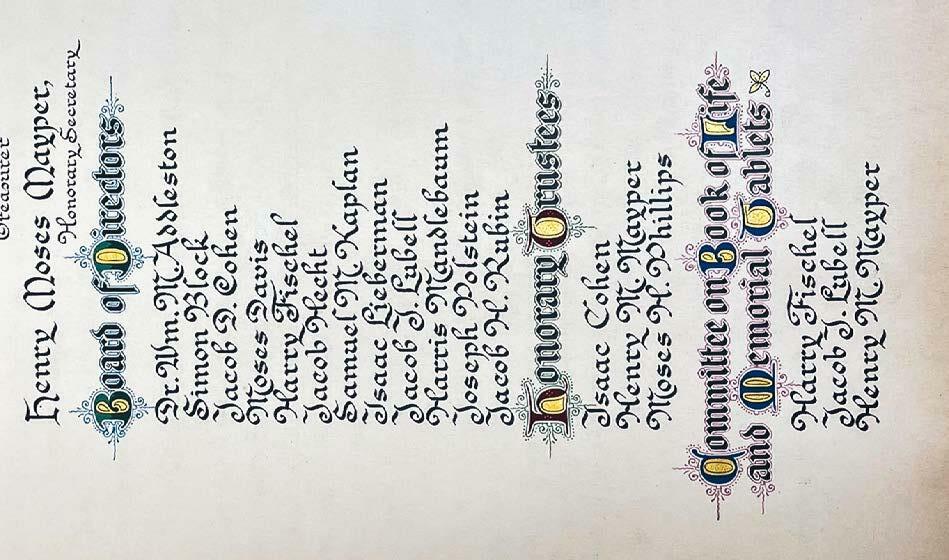 Treasurer
Henry Moses Mayper,
Honorary Secretary
Board of Directors
Dr. Wm. M. Addleston
Simon Block
Jacob D. Cohen
Moses Davis
Harry Fischel
Jacob Hecht
Samuel M. Kaplan
Isaac Lieberman
Jacob J. Lubell
Harris Mandlebaum
Joseph Polstein
Jacob H. Rubin
Honorary Trustees
Isaac Cohen
Henry M. Mayper
Moses H. Phillips
Committee on Book of Life
and Memorial Tablets
Harry Fischel
Jacob J. Lubell
Henry M. Mayper